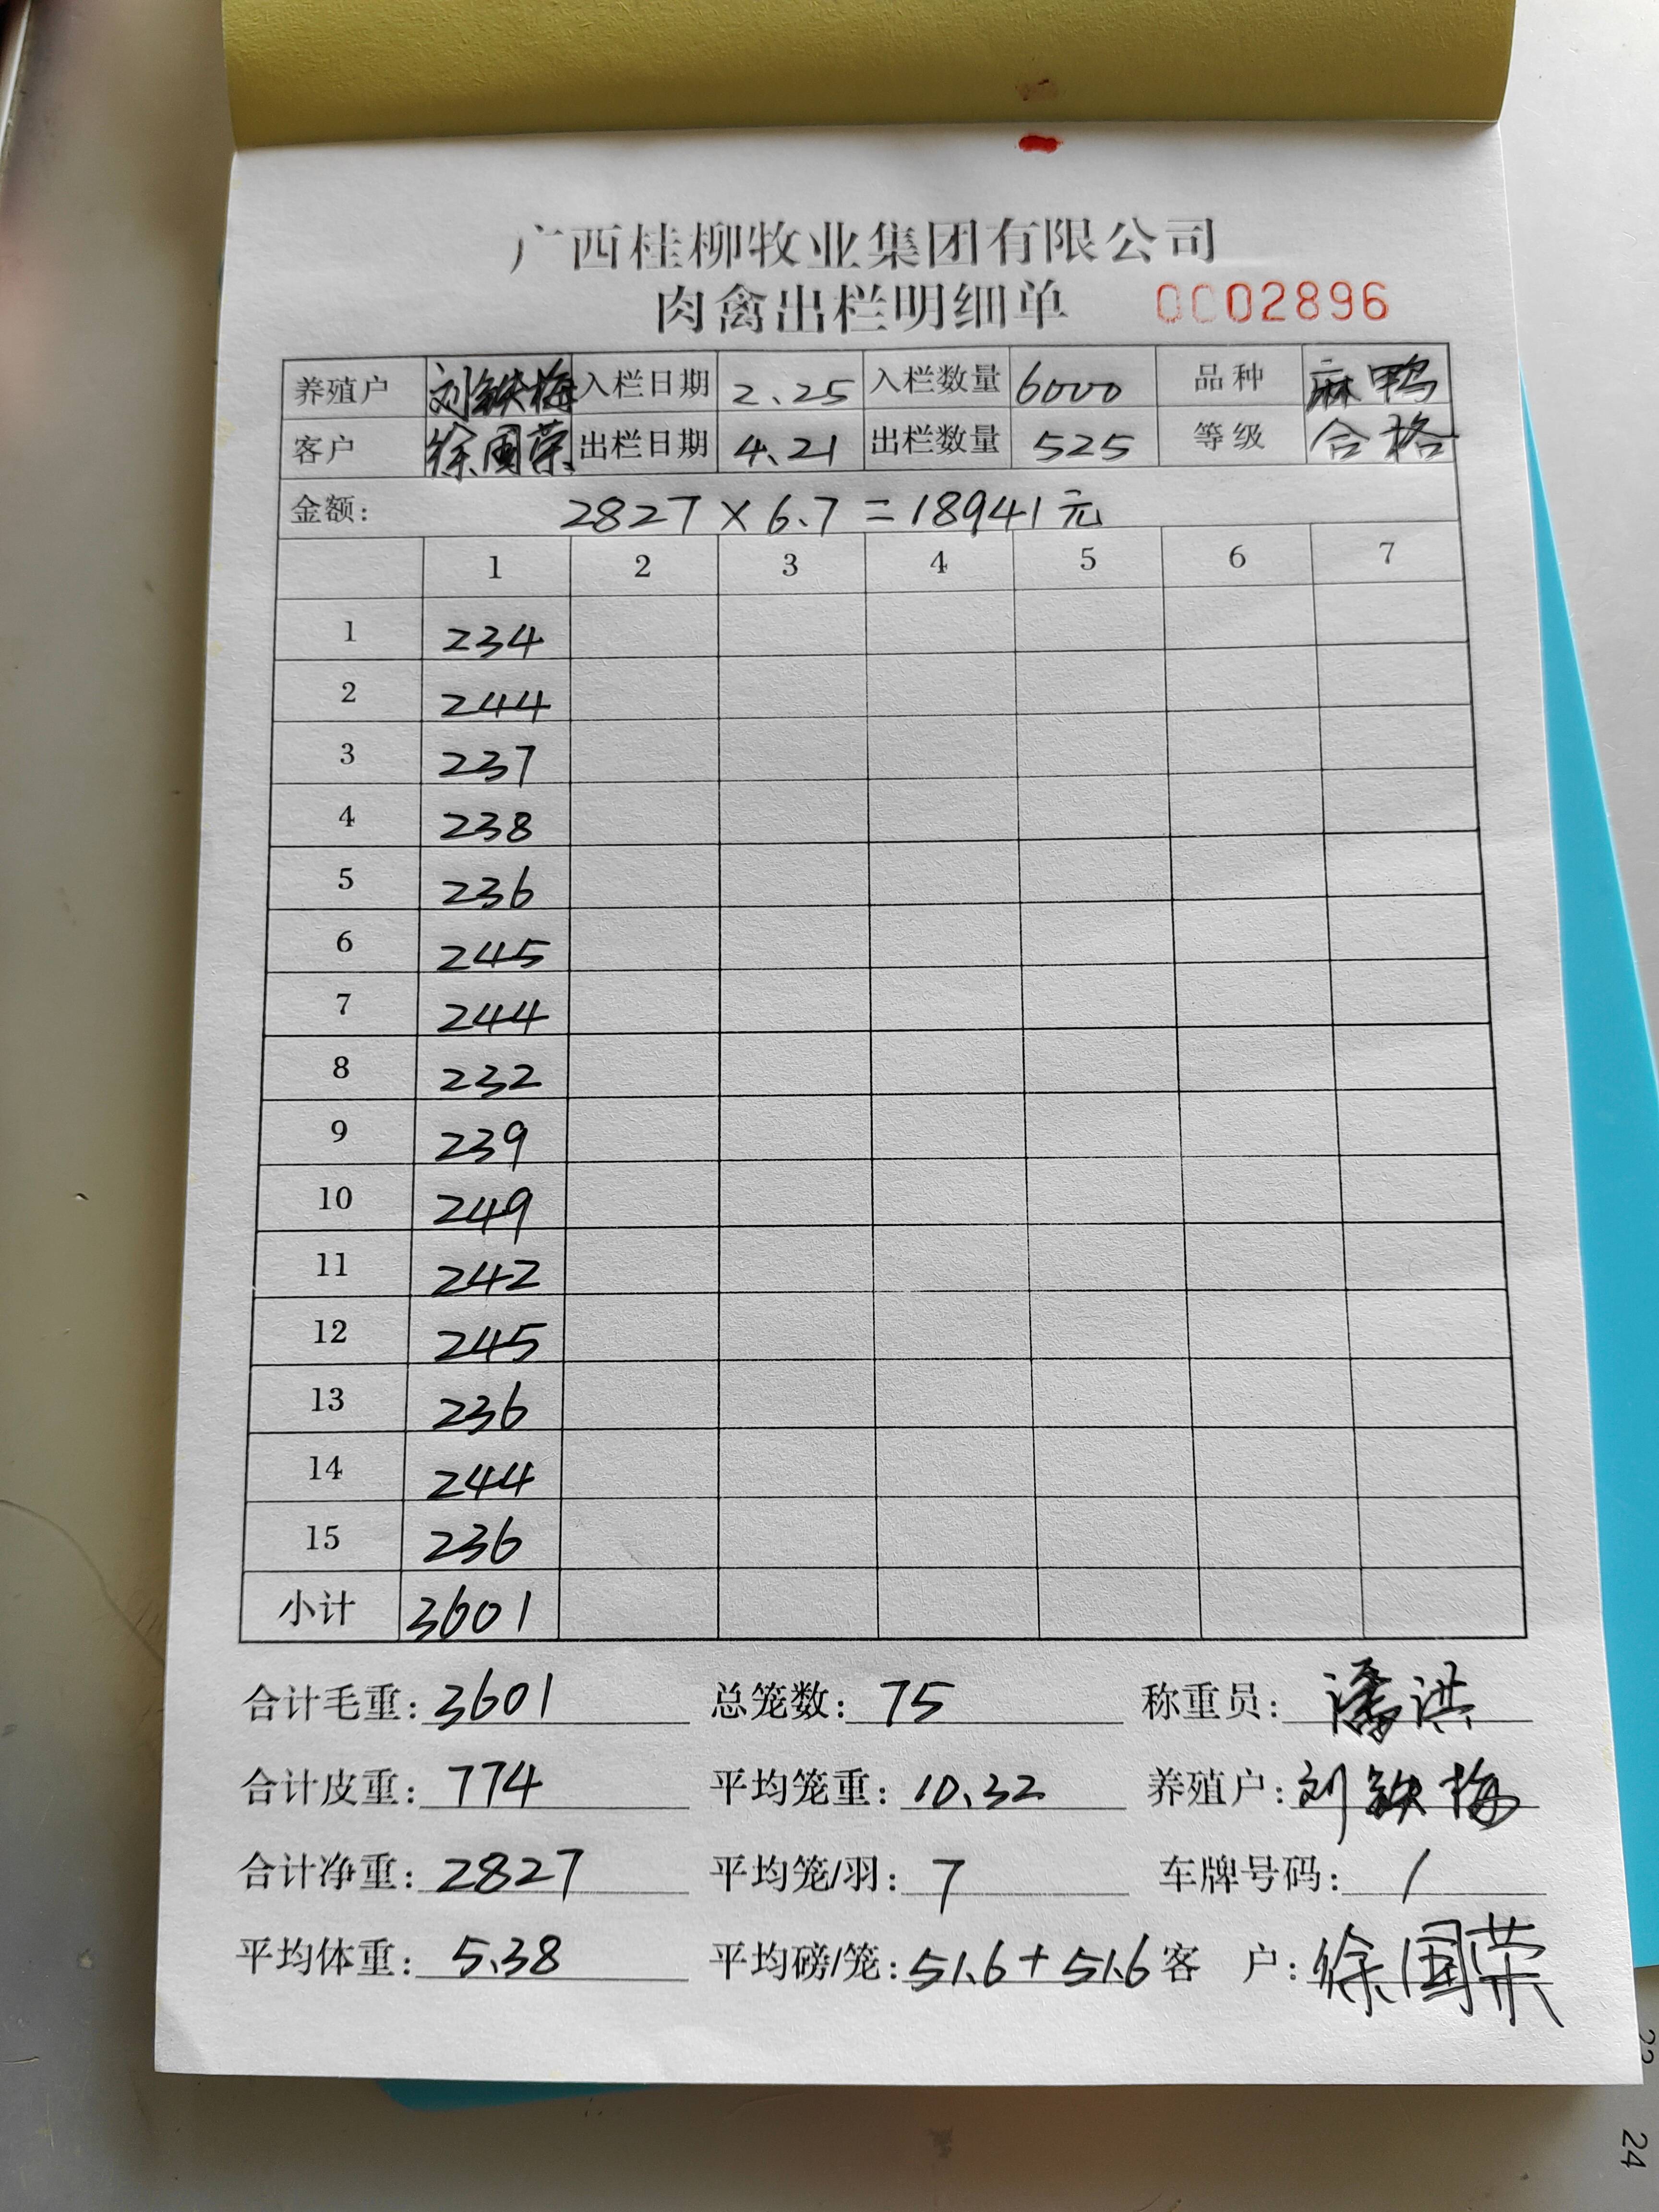 广西桂柳牧业集团有限公司
肉禽出栏明细单 0002896
养殖户 刘铁梅 入栏日期 2.25 入栏数量 6000 品种 麻鸭
客户 徐国荣 出栏日期 4.21 出栏数量 525 等级 合格
金额: 2827×6.7=18941元
1 2 3 4 5 6 7
1 234
2 244
3 237
4 238
5 236
6 245
7 244
8 232
9 239
10 249
11 242
12 245
13 236
14 244
15 236
小计 3601
合计毛重: 3601 总笼数: 75 称重员: 潘洪
合计皮重: 774 平均笼重: 10.32 养殖户: 刘铁梅
合计净重: 2827 平均笼/羽: 7 车牌号码: /
平均体重: 5.38 平均磅/笼: 51.6+51.6 客 户: 徐国荣
24